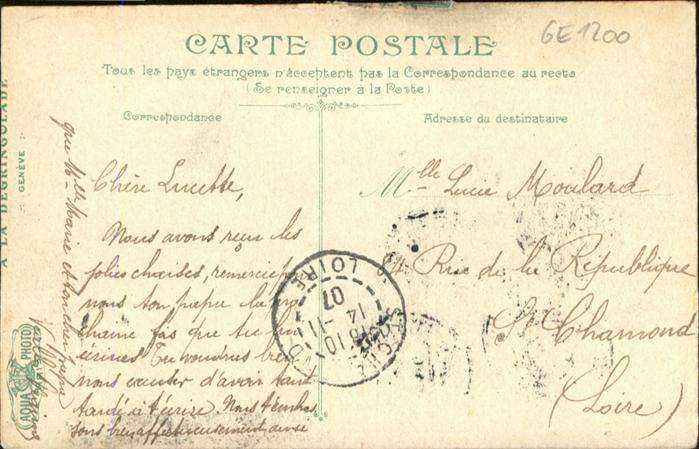 CARTE POSTALE
GE1200
Tous les pays étrangers n'acceptent pas la Correspondance au recto
(Se renseigner à la Poste)
Correspondance
Adresse du destinataire
A LA DÉGRINGOLADE
GENÈVE
AQUA PHOTO
Chère Lucette,
Nous avons reçu les
jolies chaises, remercie
nous ton papa la pro
chaine fois que tu lui
écriras Tu voudras bien
nous excuser d'avoir tant
tardé à t'écrire. Nous t'embras
sons bien affectueusement ainsi
que Mlle Marie et ton cher papa
Melle Lucie Moulard
4 Rue de la République
St Chamond
(Loire)
LOIRE
14 -11
07